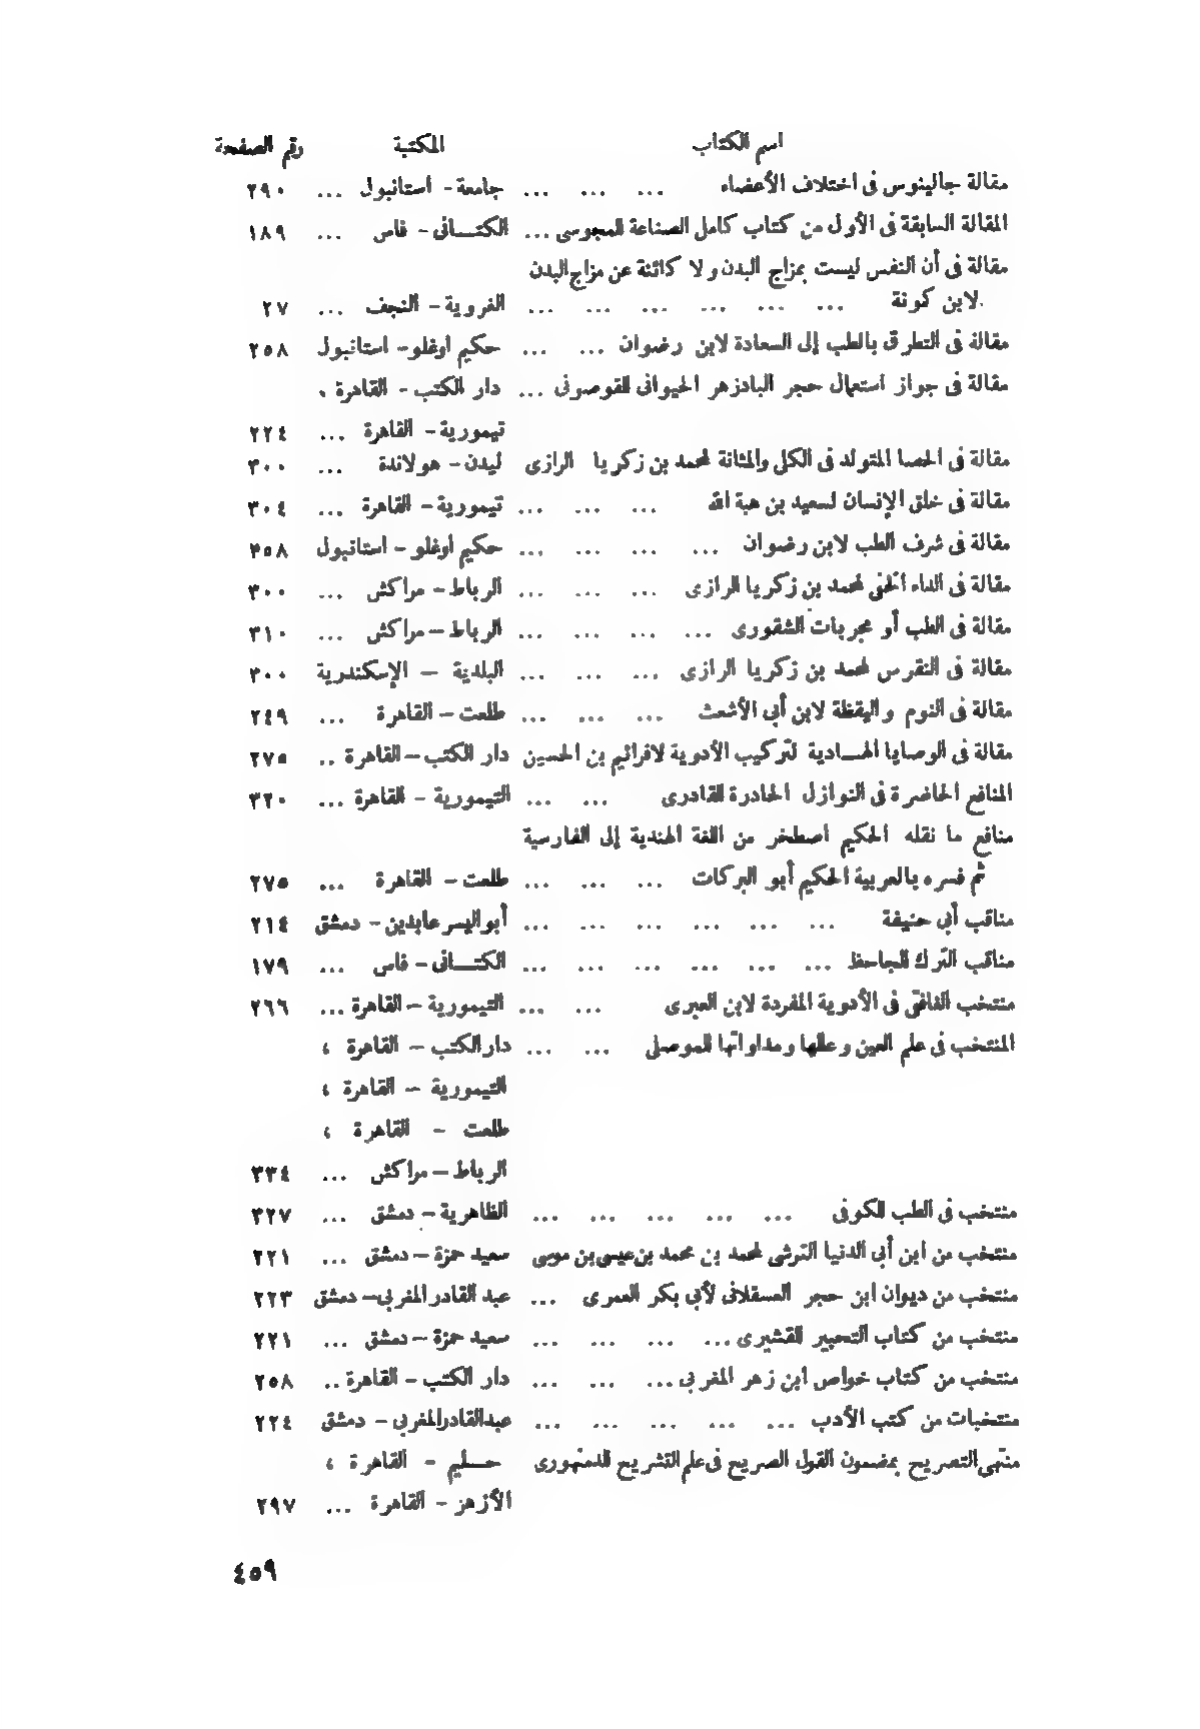 اسم الكتاب المكتبة رقم الصفحة
مقالة جالينوس فى اختلاف الأعضاء ... ... ... جامعة - استانبول ... ٢٩٠
المقالة السابقة فى الأول من كتاب كامل الصناعة للمجوسى ... الكتـــانى - فاس ... ١٨٩
مقالة فى أن النفس ليست بمزاج البدن ولا كائنة عن مزاج البدن
لابن كونة ... ... ... ... ... ... الغروية - النجف ... ٢٧
مقالة فى التطرق بالطب إلى السعادة لابن رضوان ... ... حكيم اوغلو - استانبول ٢٥٨
مقالة فى جواز استعمال حجر البادزهر الحيوانى للقوصونى ... دار الكتب - القاهرة ،
تيمورية - القاهرة ... ٢٢٤
مقالة فى الحصا المتولد فى الكلى والمثانة لمحمد بن زكريا الرازى ليدن - هولاندة ... ٣٠٠
مقالة فى خلق الإنسان لسعيد بن هبة الله ... ... ... تيمورية - القاهرة ... ٣٠٤
مقالة فى شرف الطب لابن رضوان ... ... ... ... حكيم أوغلو - استانبول ٢٥٨
مقالة فى الداء الخفى لمحمد بن زكريا الرازى ... ... ... الرباط - مراكش ... ٣٠٠
مقالة فى الطب أو مجربات الشقورى ... ... ... ... الرباط - مراكش ... ٣١٠
مقالة فى النقرس لمحمد بن زكريا الرازى ... ... ... البلدية - الإسكندرية ٣٠٠
مقالة فى النوم واليقظة لابن أبى الأشعث ... ... ... طلعت - القاهرة ... ٢٤٩
مقالة فى الوصايا الهـــادية لتركيب الأدوية لافرائيم بن الحسين دار الكتب - القاهرة .. ٢٧٥
المنافع الحاضرة فى النوازل الحادرة للقادرى ... ... التيمورية - القاهرة ... ٣٢٠
منافع ما نقله الحكيم اصطخر من اللغة الهندية إلى الفارسية
ثم فسره بالعربية الحكيم أبو البركات ... ... ... طلعت - القاهرة ... ٢٧٥
مناقب أبى حنيفة ... ... ... ... ... ... أبو اليسر عابدين - دمشق ٢١٤
مناقب الترك للجاحظ ... ... ... ... ... ... الكتـــانى - فاس ... ١٧٩
منتخب الغافقى فى الأدوية المفردة لابن العبرى ... ... التيمورية - القاهرة ... ٢٦٦
المنتخب فى علم العين وعللها ومداواتها للموصلى ... ... دار الكتب - القاهرة ،
التيمورية - القاهرة ،
طلعت - القاهرة ،
الرباط - مراكش ... ٣٣٤
منتخب فى الطب للكوفى ... ... ... ... ... الظاهرية - دمشق ... ٣٢٧
منتخب من ابن أبى الدنيا القرشى لمحمد بن محمد بن عيسى بن موسى سعيد حمزة - دمشق ... ٢٢١
منتخب من ديوان ابن حجر العسقلانى لأبى بكر العمرى ... عبد القادر المغربى - دمشق ٢٢٣
منتخب من كتاب التحبير للقشيرى ... ... ... ... سعيد حمزة - دمشق ... ٢٢١
منتخب من كتاب خواص ابن زهر المغربى ... ... ... دار الكتب - القاهرة .. ٢٥٨
منتخبات من كتب الأدب ... ... ... ... ... عبدالقادرالمغربى - دمشق ٢٢٤
منتهى التصريح بمضمون القول الصريح فى علم التشريح للدمنهورى حـــليم - القاهرة ،
الأزهر - القاهرة ... ٢٩٧
٤٥٩